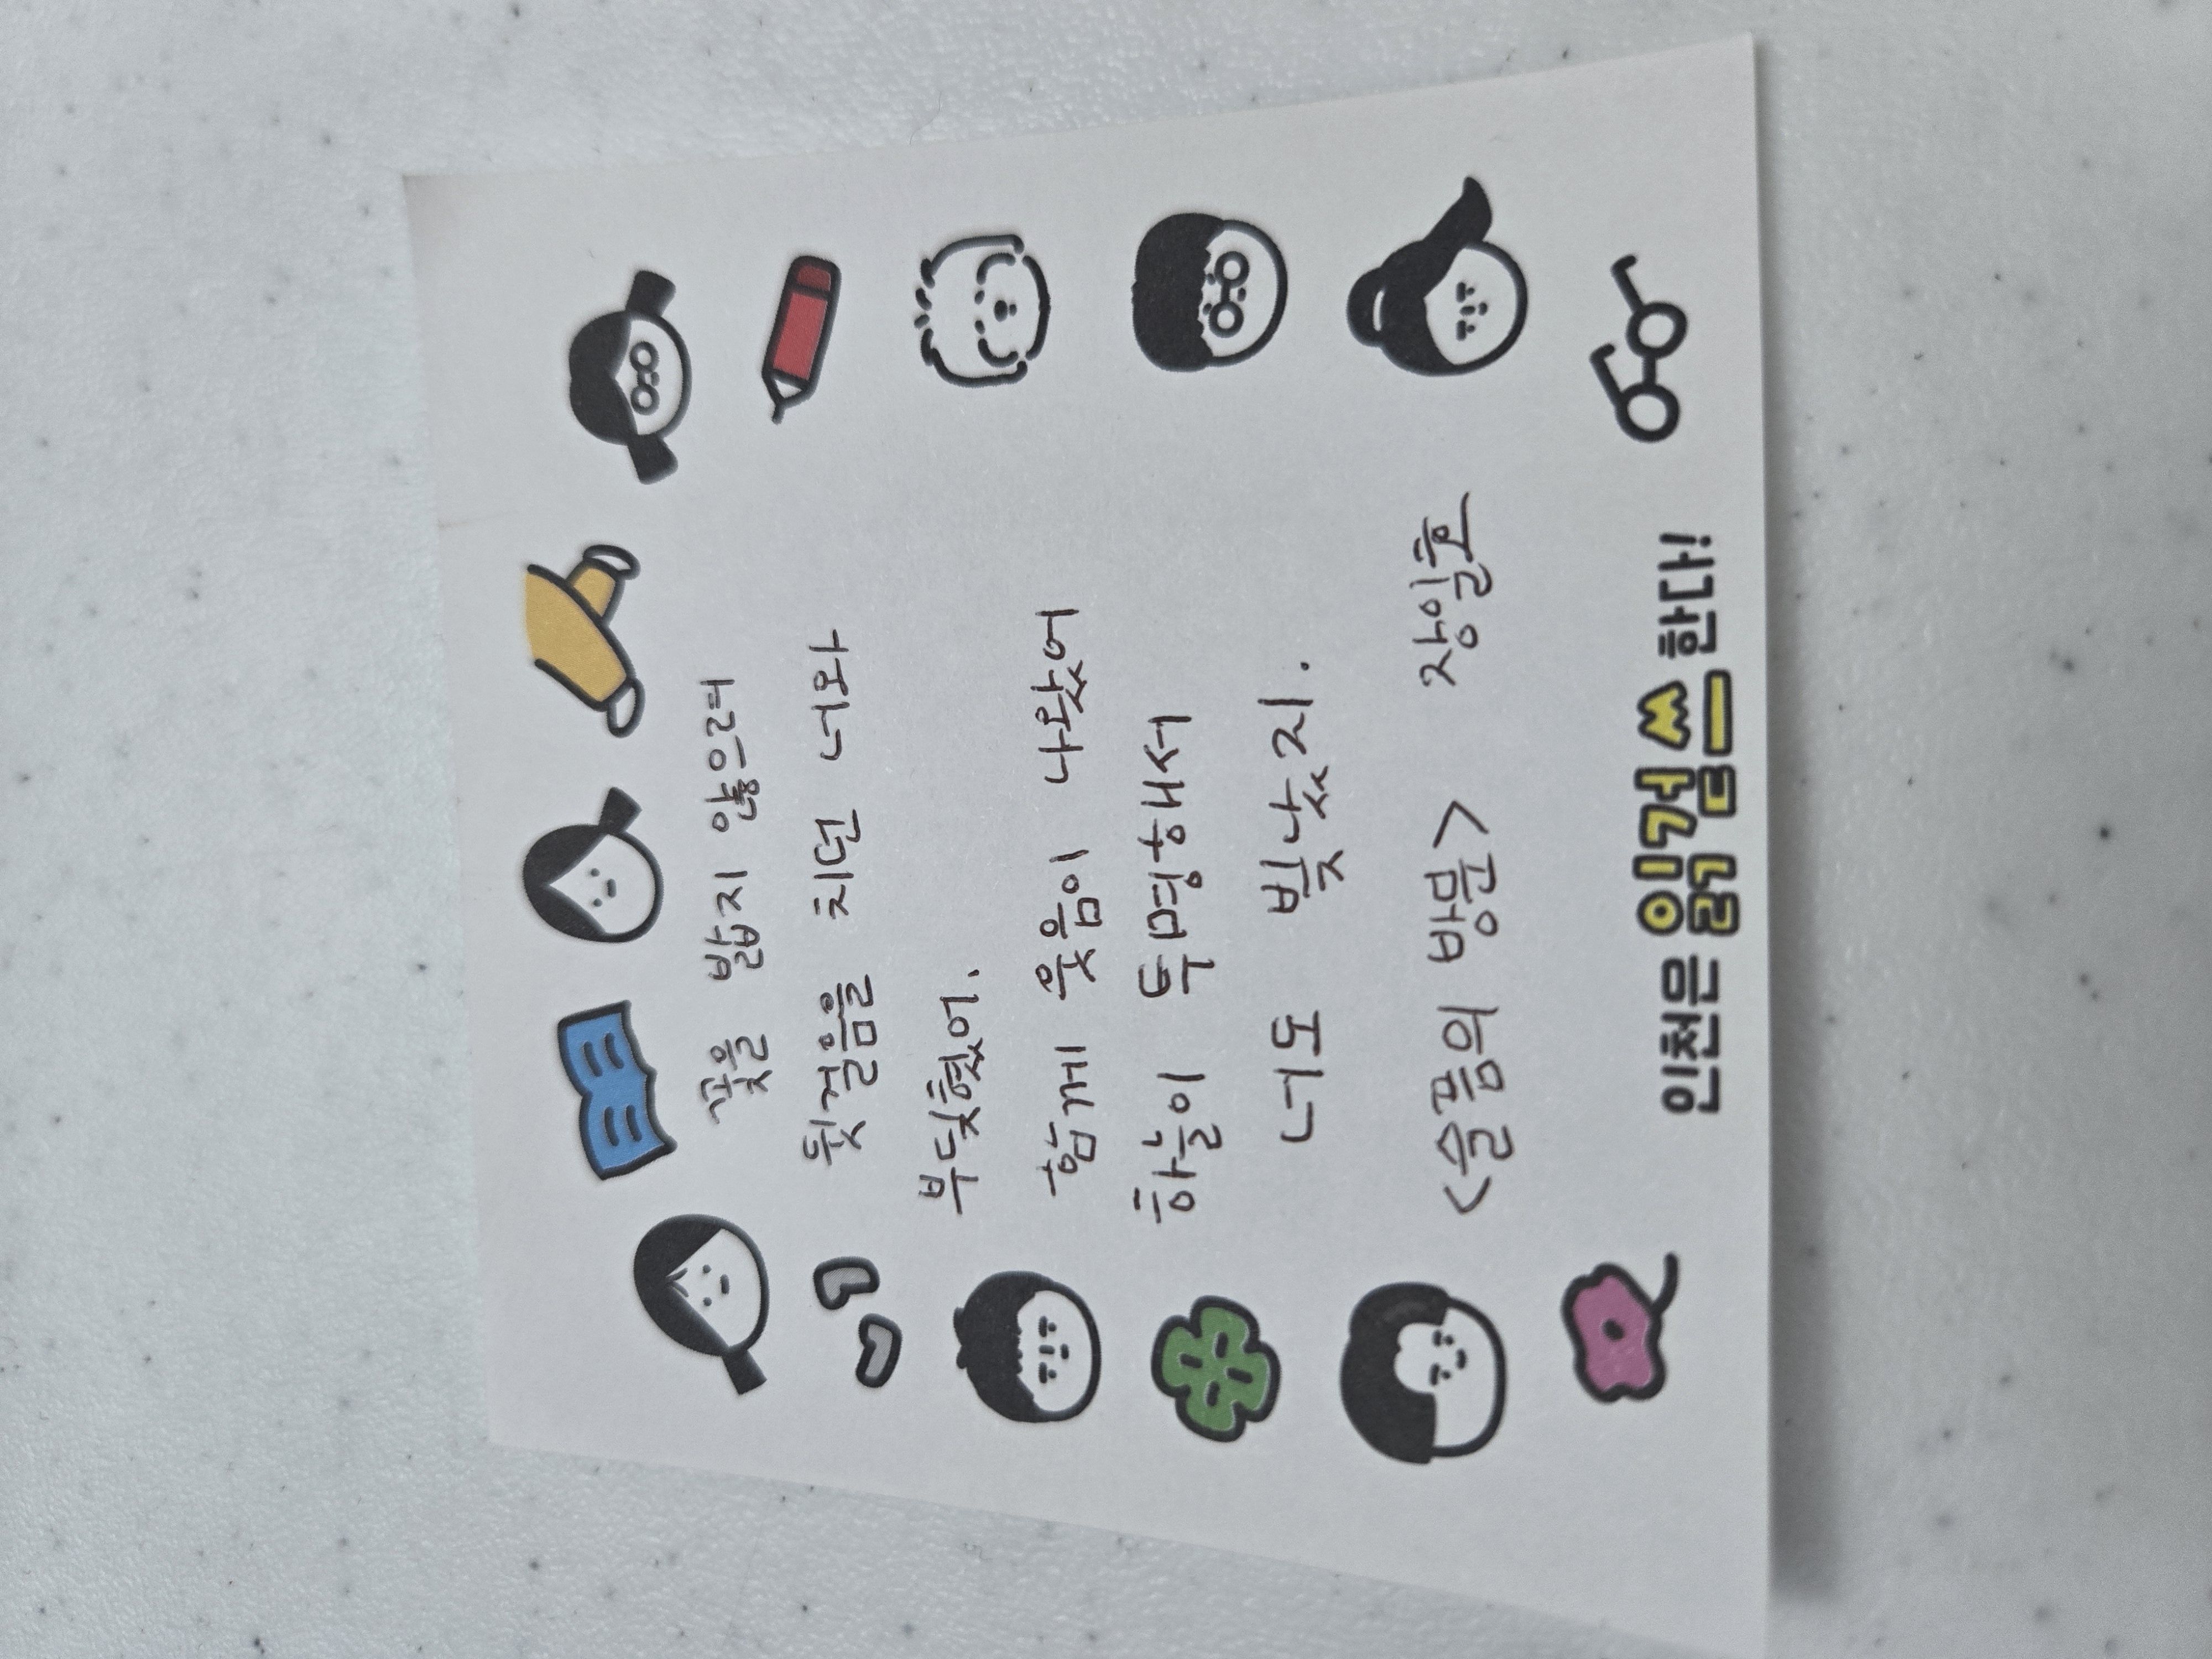 꽃을 밟지 않으려
뒷걸음을 치던 너와
부딪혔어.
함께 웃음이 나왔어
하늘이 투명해서
너도 빛났지.
<슬픔의 방문> 장일호
인천은 읽걷쓰 한다!
읽고